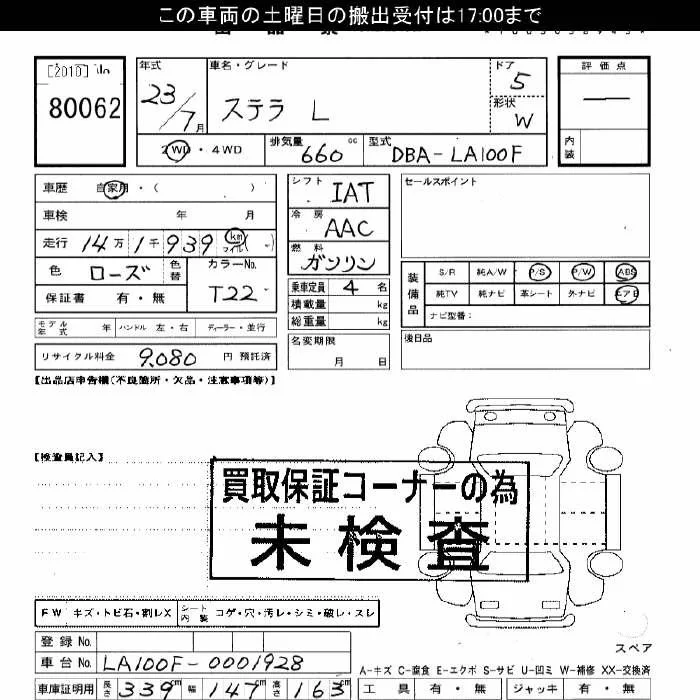 この車両の土曜日の搬出受付は17:00まで
[2010] No
80062
年式 車名・グレード ドア 評価点
23/7月 ステラ L 5 —
形状 W
2WD・4WD 排気量 660 cc 型式 DBA-LA100F 内装
車歴 自家用・( )
車検 年 月
走行 14万1千939 km マイル( )
色 ローズ 色替 カラーNo. T22
保証書 有・無
モデル年式 年 ハンドル 左・右 ディーラー・並行
リサイクル料金 9,080 円 預託済
シフト IAT
冷房 AAC
燃料 ガソリン
乗車定員 4 名
積載量 kg
総重量 kg
名変期限 月 日
セールスポイント
装備品 S/R 純A/W P/S P/W ABS
純TV 純ナビ 革シート 外ナビ エアB
ナビ型番:
後日品
【出品店申告欄(不良箇所・欠品・注意事項等)】
【検査員記入】
買取保証コーナーの為
未検査
FW キズ・トビ石・割レX シート内装 コゲ・穴・汚レ・シミ・破レ・スレ
スペア
登録No.
車台No. LA100F-0001928
車庫証明用 長さ 339cm 幅 147cm 高さ 163cm
A-キズ C-腐食 E-エクボ S-サビ U-凹ミ W-補修 XX-交換済
工具 有・無 ジャッキ 有・無